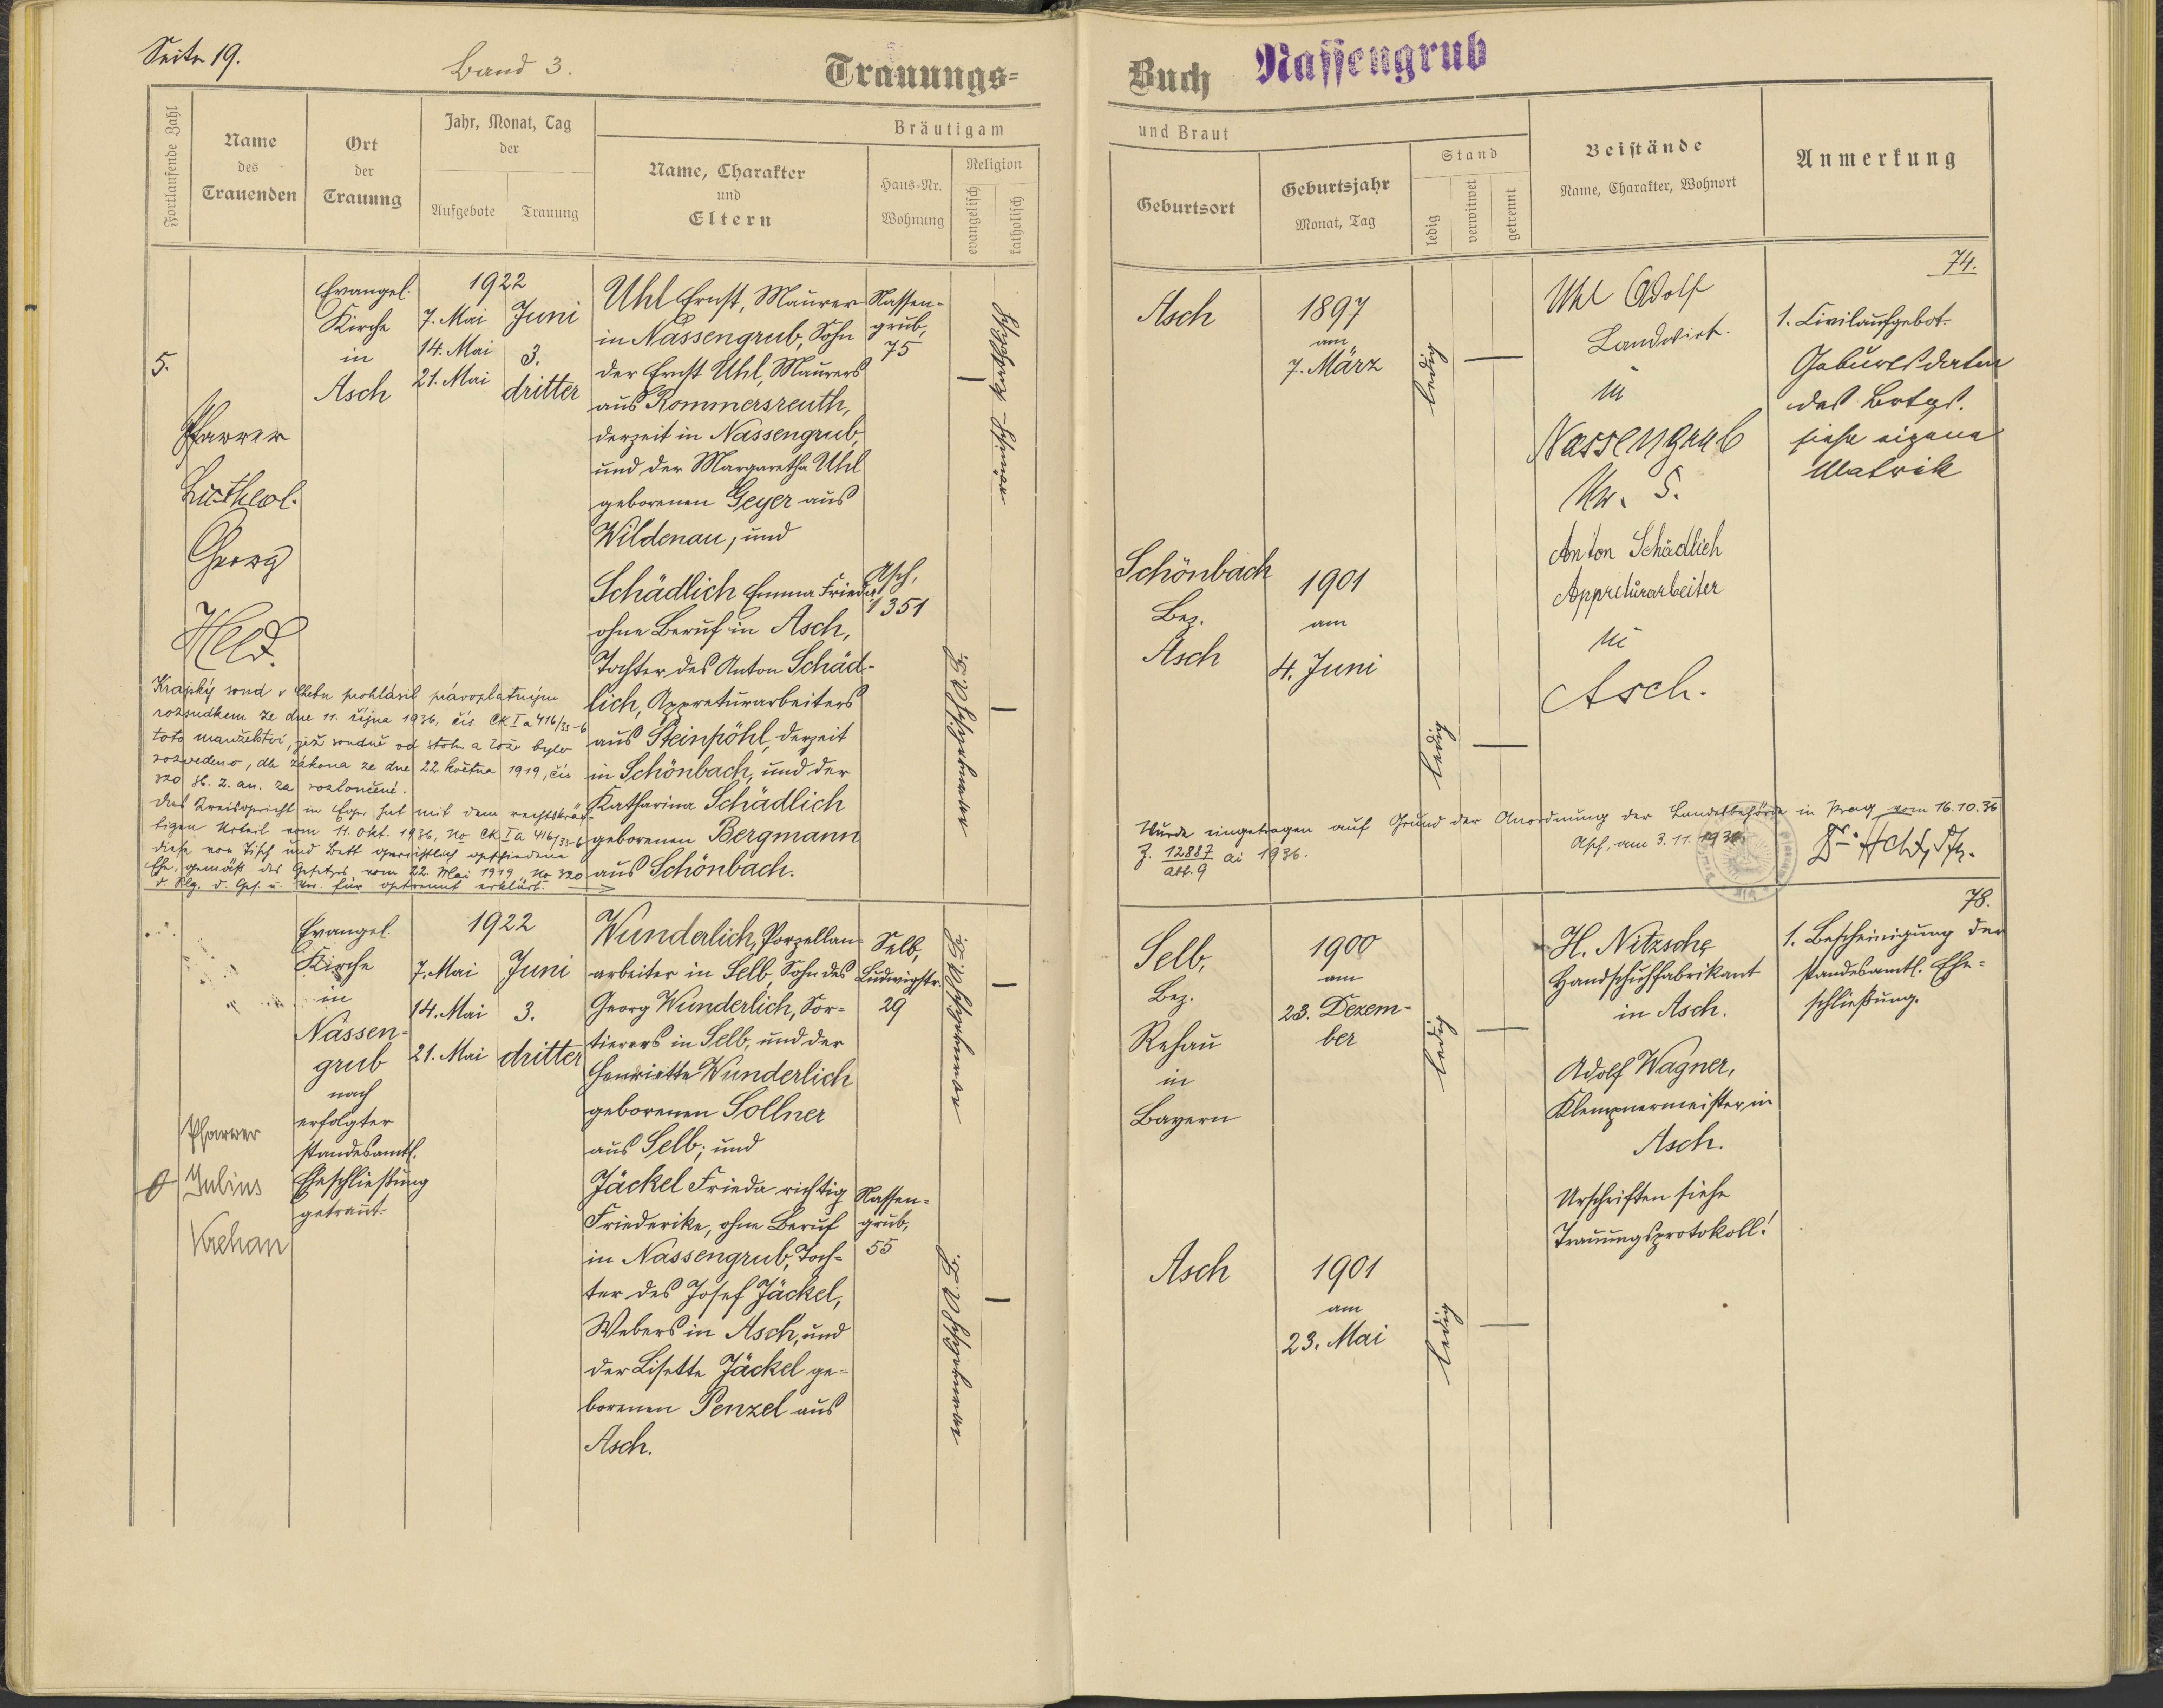 Seite 19.
Band 3.
Trauungs=
Buch Nassengrub
Fortlaufende Zahl
Name
des
Trauenden
Ort
der
Trauung
Jahr, Monat, Tag
der
Aufgebote
Trauung
Bräutigam
Name, Charakter
und
Eltern
Haus=Nr.
Wohnung
Religion
evangelisch
katholisch
und Braut
Geburtsort
Geburtsjahr
Monat, Tag
Stand
ledig
verwitwet
getrennt
Beistände
Name, Charakter, Wohnort
Anmerkung
5.
Pfarrer
Lic. theol.
Georg
Held.
Evangel.
Kirche
in
Asch
1922
7. Mai
14. Mai
21. Mai
Juni
3.
dritter
Uhl Ernst, Maurer
in Nassengrub, Sohn
der Ernst Uhl, Maurers
aus Rommersreuth,
derzeit in Nassengrub,
und der Margaretha Uhl
geborenen Geyer aus
Wildenau, und
Nassen-
grub,
75
Schädlich Emma Frieda
ohne Beruf in Asch,
Tochter des Anton Schäd-
lich, Appreturarbeiters
aus Steinpöhl, derzeit
in Schönbach, und der
Katharina Schädlich
geborenen Bergmann
aus Schönbach.
Asch,
1351
evangelisch A.B.
Asch
1897
am
7. März
ledig
Uhl Adolf
Landwirt.
in
Nassengrub
Nr. 5.
Anton Schädlich
Appreturarbeiter
in
Asch.
74.
1. Civilaufgebot.
Geburtsdaten
des Brtgs.
siehe eigene
Matrik
Schönbach
Bez.
Asch
1901
am
4. Juni
ledig
Krajský soud v Chebu prohlásil právoplatným
rozsudkem ze dne 11. října 1936, čís. Ck I a 416/33-6
toto manželství, jež soudně od stolu a lože bylo
rozvedeno, dle zákona ze dne 22. května 1919, čís
320 Sb. z. a n. za rozloučené.
Das Kreisgericht in Eger hat mit dem rechtskräf-
tigen Urteil vom 11. Okt. 1936, No Ck I a 416/33-6
diese von Tisch und Bett gerichtlich geschiedene
Ehe, gemäß des Gesetzes vom 22. Mai 1919, No 320
d. Slg. d. Ges. u. Vdr. für getrennt erklärt.
Wurde eingetragen auf Grund der Anordnung der Landesbehörde in Prag vom 16.10.36
Z. 12887/Abt. 9 ai 1936.
Asch, am 3. 11. 1936.
Dr. Held, Pfr.
Pfarrer
Julius
Krehan
Evangel.
Kirche
in
Nassen-
grub
nach
erfolgter
standesamtl.
Eheschließung
getraut.
1922
7. Mai
14. Mai
21. Mai
Juni
3.
dritter
Wunderlich, Porzellan-
arbeiter in Selb, Sohn des
Georg Wunderlich, Sor-
tierers in Selb, und der
Henriette Wunderlich
geborenen Sollner
aus Selb; und
Selb,
Ludwigstr.
29
evangelisch A.B.
Jäckel Frieda richtig
Friederike, ohne Beruf
in Nassengrub, Toch-
ter des Josef Jäckel,
Webers in Asch, und
der Lisette Jäckel ge-
borenen Penzel aus
Asch.
Nassen-
grub,
55
evangelisch A.B.
Selb,
Bez.
Rehau
in
Bayern
1900
am
23. Dezem-
ber
ledig
H. Nitzsche
Handschuhfabrikant
in Asch.
Adolf Wagner,
Klempnermeister in
Asch.
Urschriften siehe
Trauungsprotokoll!
78.
1. Bescheinigung der
standesamtl. Ehe-
schließung.
Asch
1901
am
23. Mai
ledig